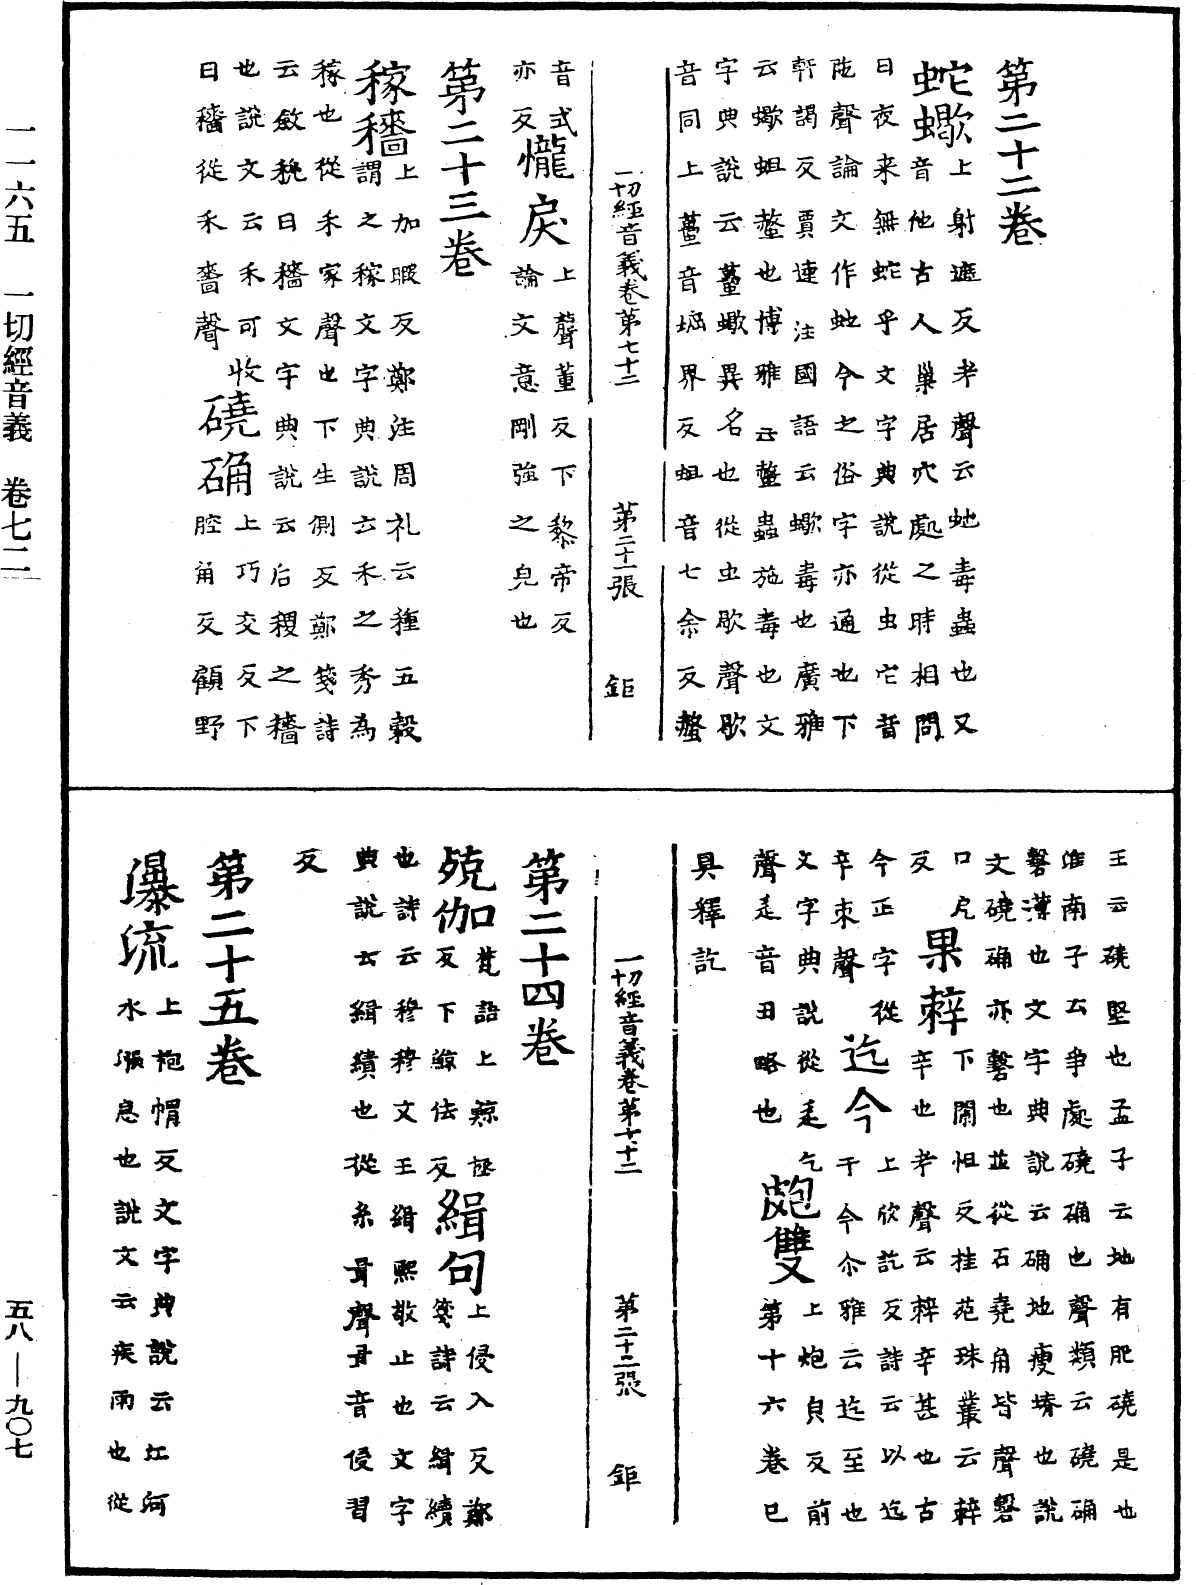 一一六五　一切經音義　卷七二
五八—九〇七
第二十二卷
蛇蠍上射遮反考聲云虵毒蟲也又
音他古人巢居穴處之時相問
曰夜来無蛇乎文字典說從虫它音
陁聲論文作虵今之俗字亦通也下
軒謁反賈逵注國語云蠍毒也廣雅
云蠍蛆螫也博雅云螫蟲施毒也文
字典說云蠆蠍異名也從虫歇聲歇
音同上蠆音坵界反蛆音七余反螫
一切經音義卷第七十二　第二十一張　鉅
音式𢤱戾上聾董反下黎帝反
亦反論文意剛強之皃也
第二十三卷
稼穡上加暇反鄭注周礼云種五穀
謂之稼文字典說云禾之秀為
稼也從禾家聲也下生側反鄭箋詩
云斂穐曰穡文字典說云后稷之穡
也說文云禾可收磽确上巧交反下
曰穡從禾嗇聲腔角反顧野
王云磽堅也孟子云地有肥磽是也
淮南子云爭處磽确也聲類云磽确
礊薄也文字典說云确地瘦塉也說
文磽确亦礊也並從石堯角皆聲礊
口戹果䔉下闌怛反桂苑珠叢云䔉
反辛也考聲云䔉辛甚也古
今正字從迄今上欣訖反詩云以迄
辛束聲于今尒雅云迄至也
文字典說從辵乞皰雙上炮皃反前
聲辵音丑略也第十六卷已
具釋訖
一切經音義卷第七十二　第二十二張　鉅
第二十四卷
殑伽梵語上鯨拯緝句上侵入反鄭
反下鯨佉反箋詩云緝續
也詩云穆穆文王緝熙敬止也文字
典說云緝績也從糸咠聲咠音侵習
反
第二十五卷
瀑流上袍帽反文字典說云江河
水漲急也說文云疾雨也從